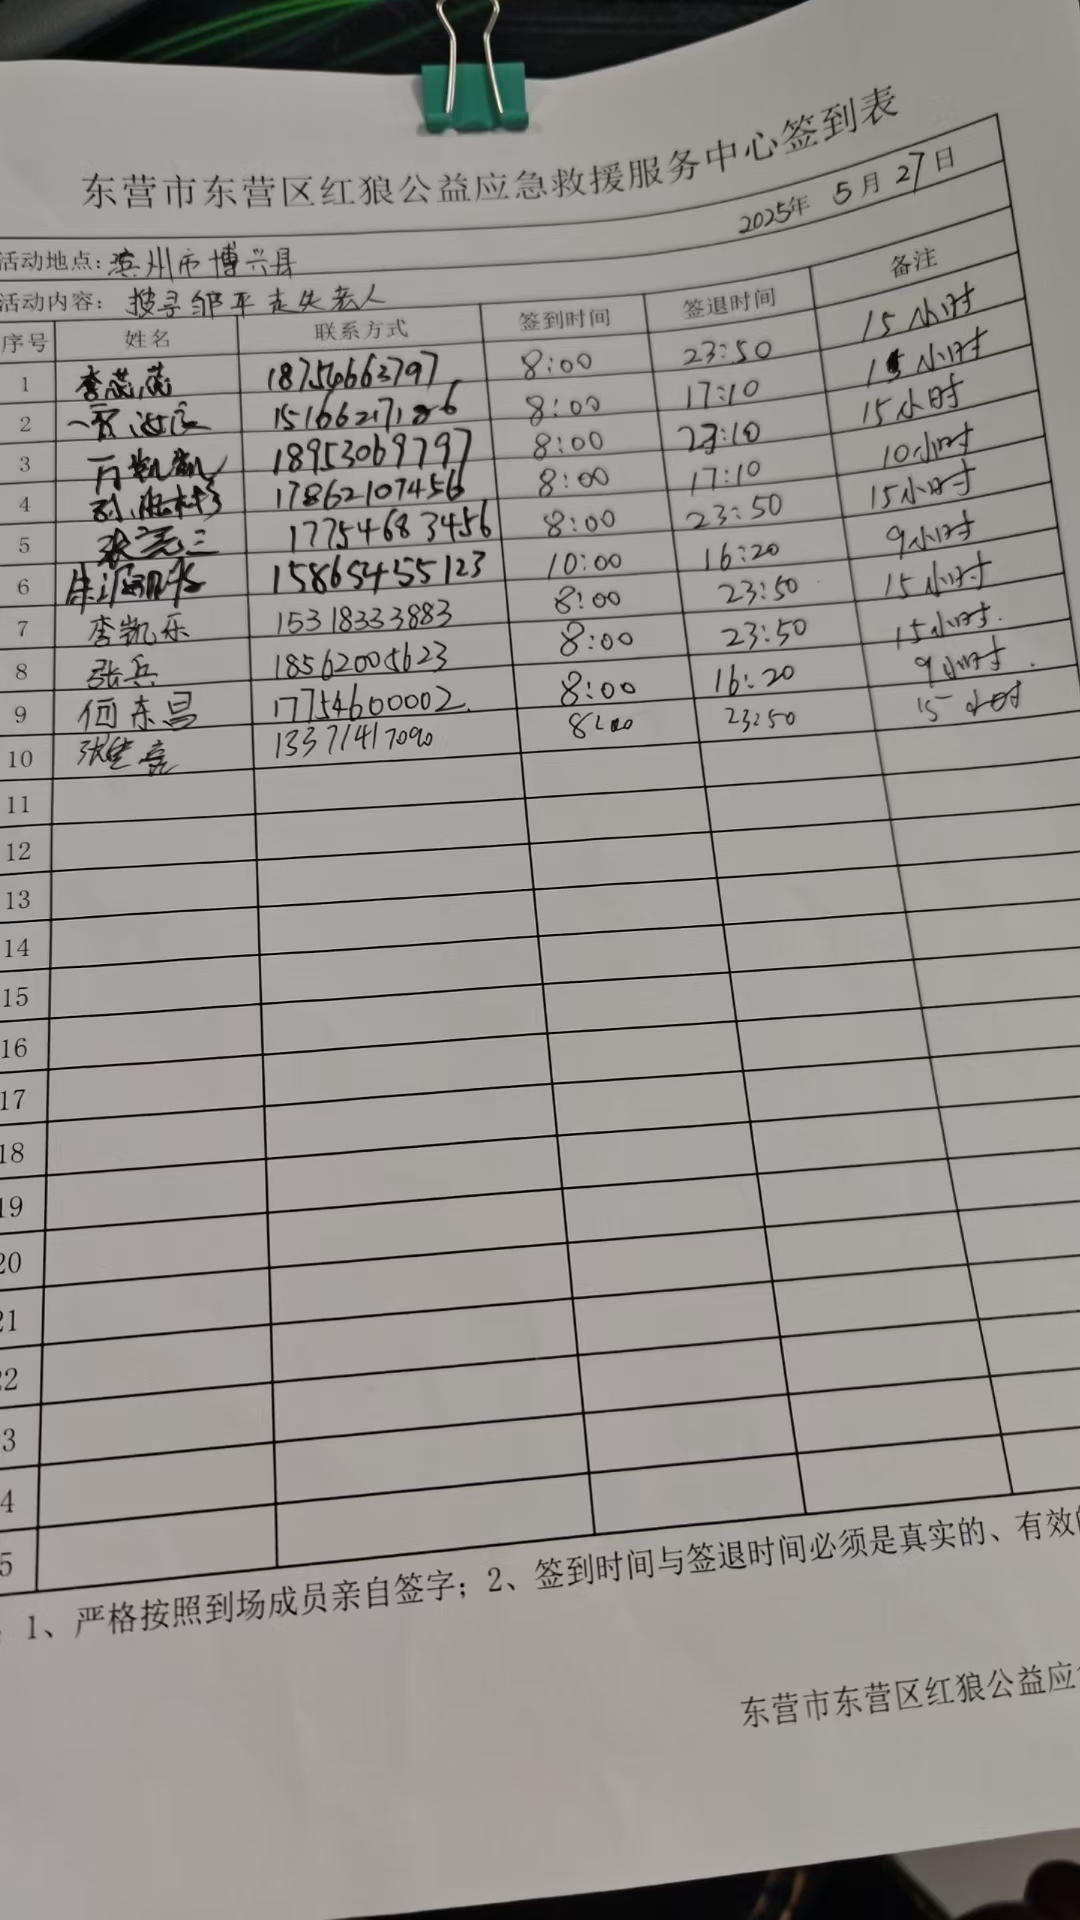 东营市东营区红狼公益应急救援服务中心签到表
2025年 5月 27日
活动地点：滨州市博兴县
活动内容：搜寻邹平走失老人
序号 姓名 联系方式 签到时间 签退时间 备注
1 李蕊蕊 18754663797 8:00 23:50 15小时
2 15166217126 8:00 17:10 15小时
3 18953069797 8:00 23:10 15小时
4 17862107456 8:00 17:10 10小时
5 张亮三 17754683456 8:00 23:50 15小时
6 15865455123 10:00 16:20 9小时
7 李凯乐 15318333883 8:00 23:50 15小时
8 张兵 18562005623 8:00 23:50 15小时
9 何东昌 17754600002 8:00 16:20 9小时
10 13371417090 8:00 23:50 15小时
11
12
13
14
15
16
17
18
19
20
21
22
3
4
5
1、严格按照到场成员亲自签字；2、签到时间与签退时间必须是真实的、有效的
东营市东营区红狼公益应急